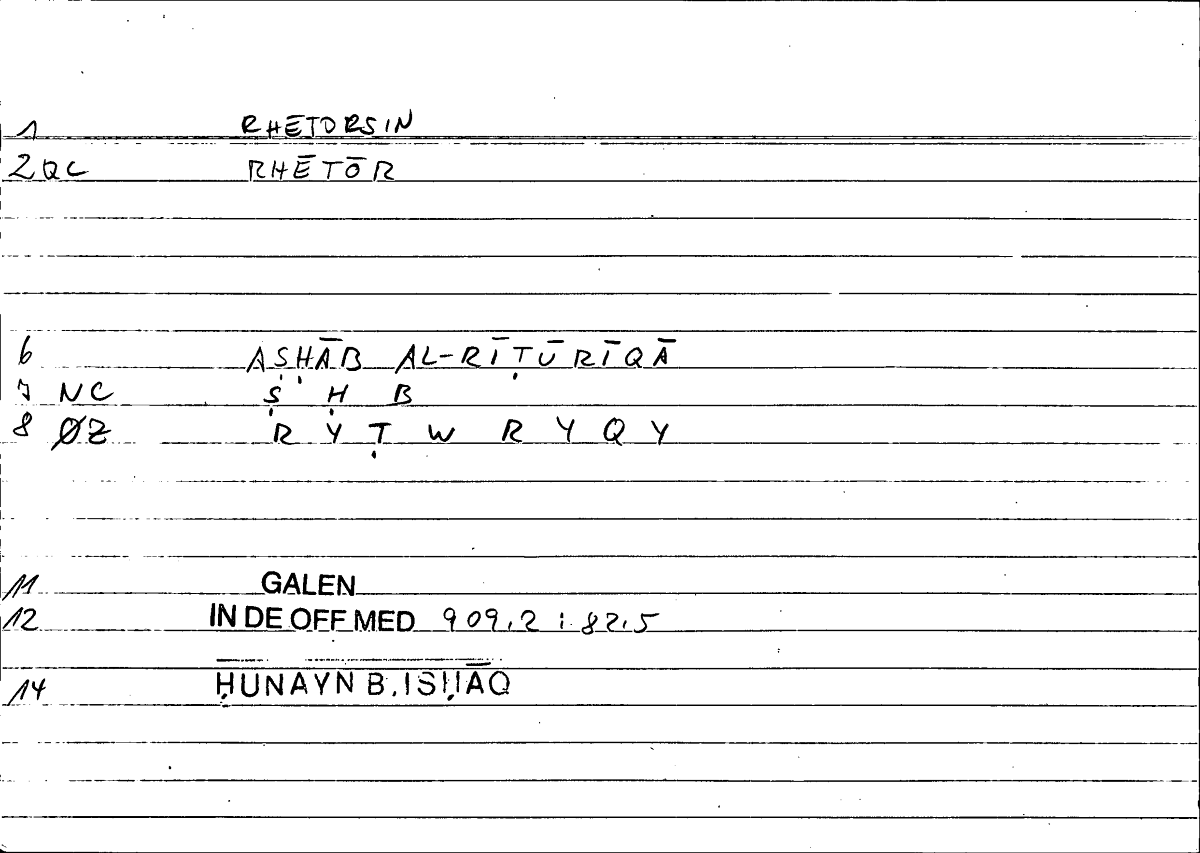 1 RHETORSIN
2 QC RHĒTŌR
6 AṢḤĀB AL-RĪṬŪRĪQĀ
7 NC Ṣ Ḥ B
8 ØZ R Y Ṭ W R Y Q Y
11 GALEN
12 IN DE OFF MED 909,2 : 82,5
14 ḤUNAYN B. ISḤĀQ